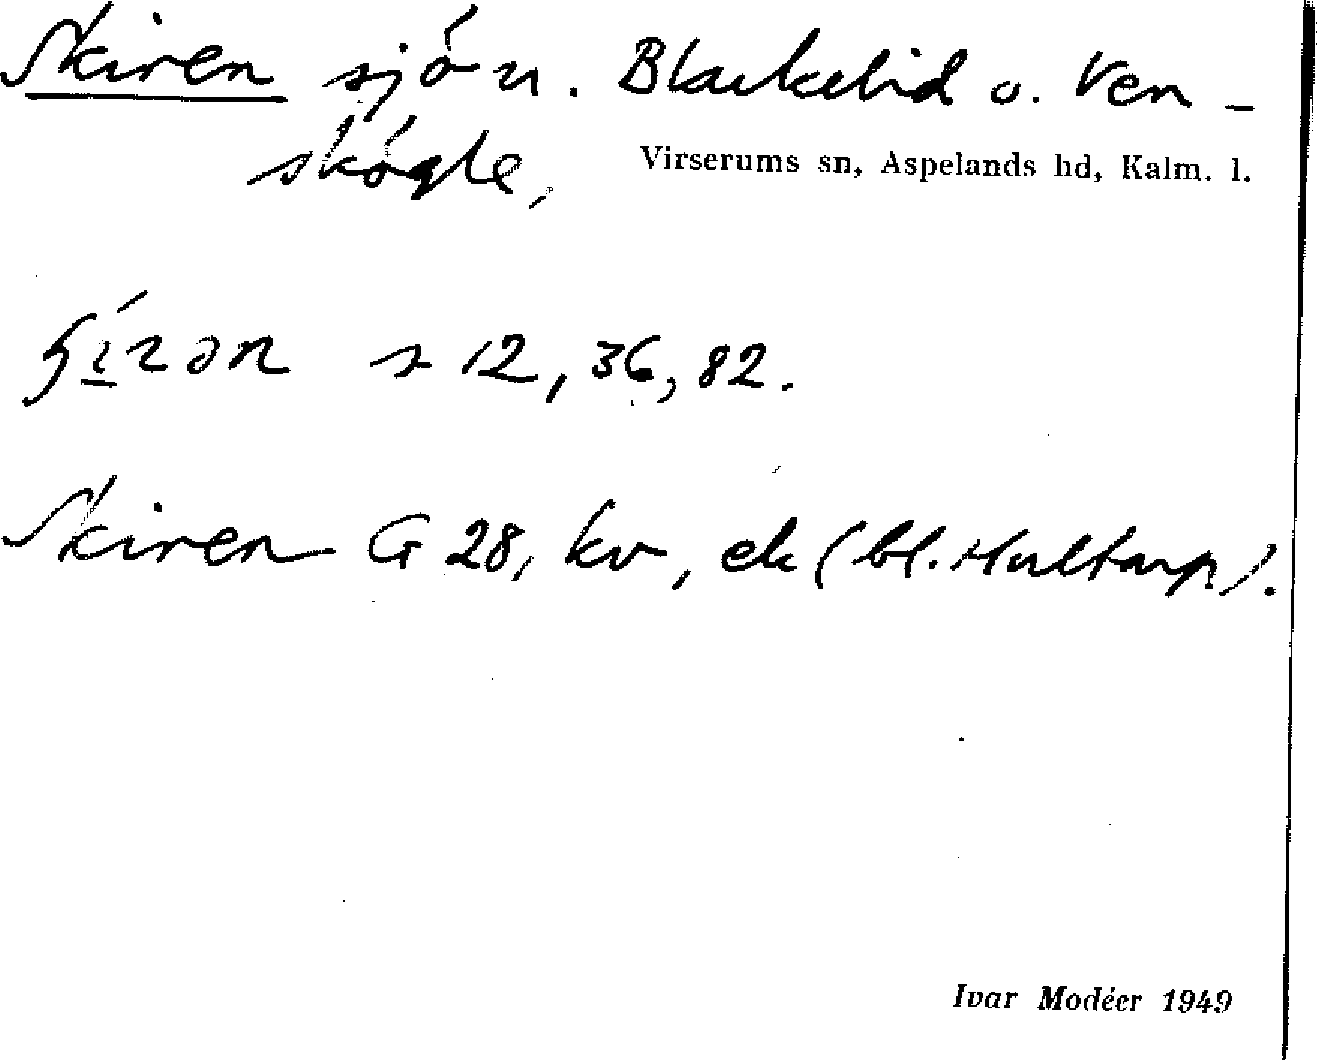 Skiren sjö u. Blackelid o. Ven-
skögle,
Virserums sn, Aspelands hd, Kalm. l.
s 12, 36, 82.
Skiren G 28, kv, ek (bl. Hultarp).
Ivar Modéer 1949